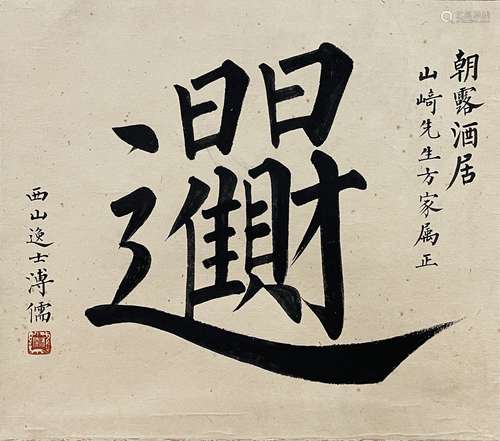 朝露酒居
山﨑先生方家属正
日日進財
西山逸士溥儒